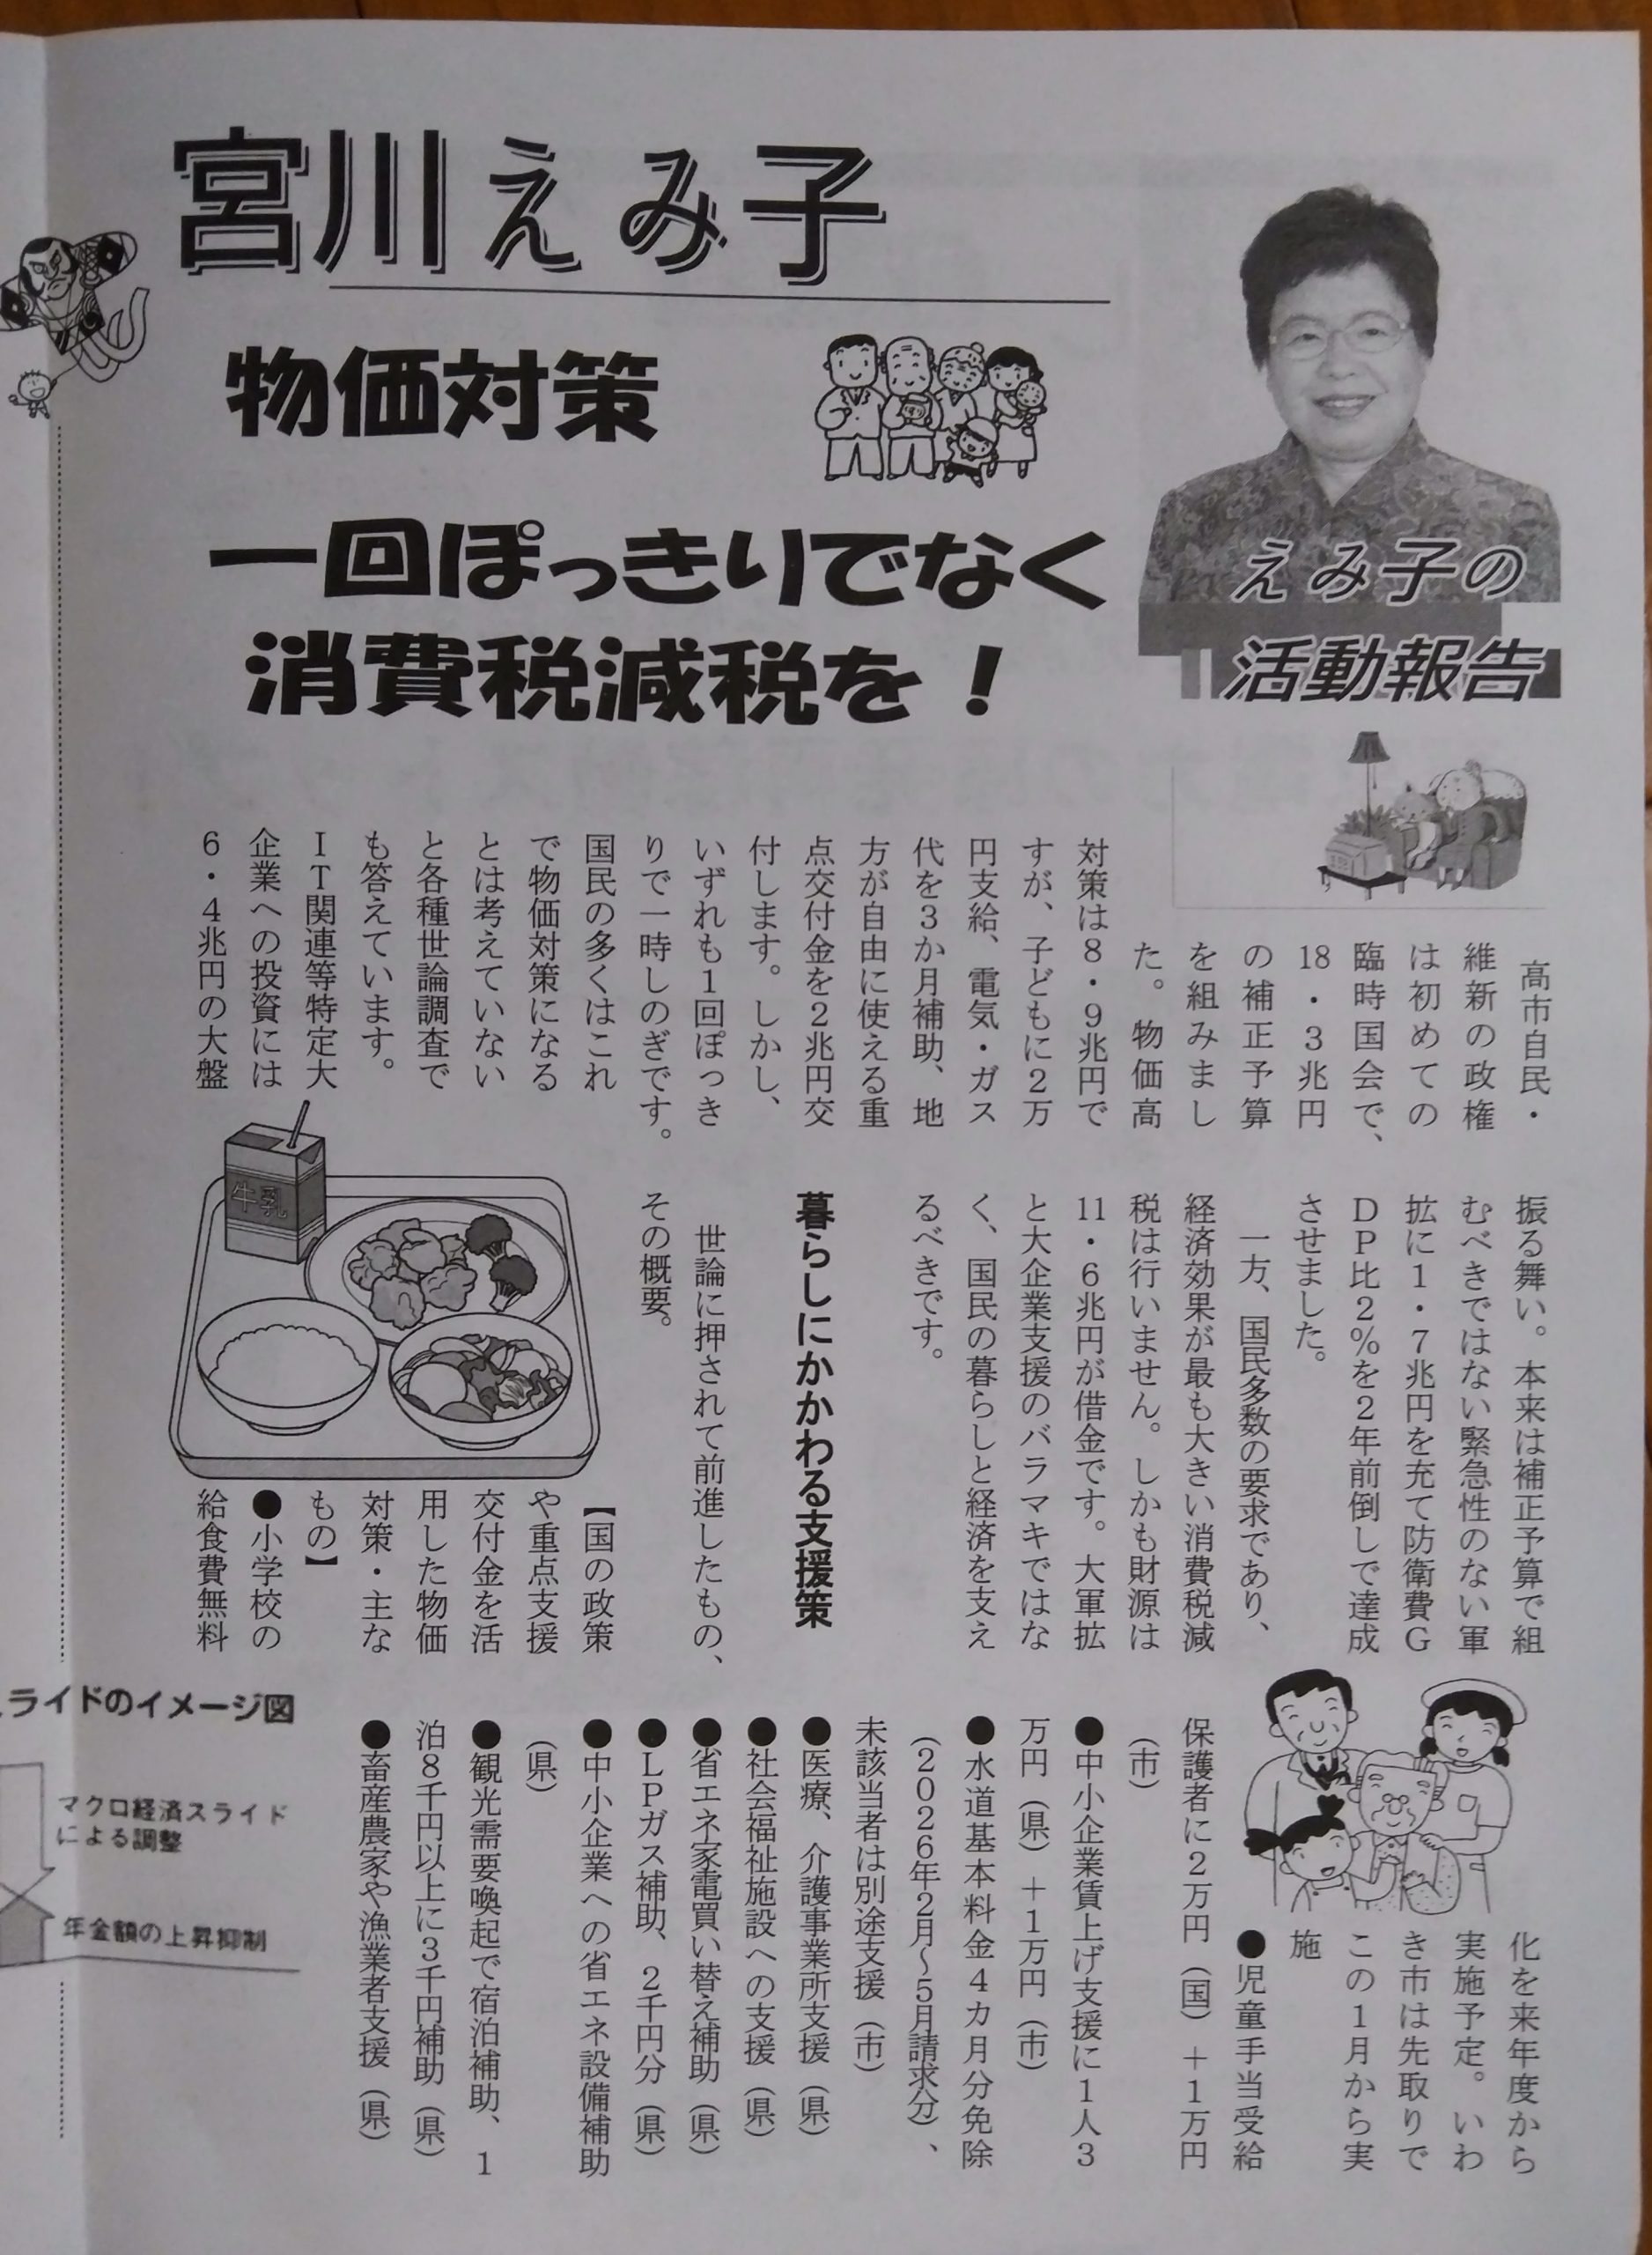 宮川えみ子
物価対策
一回ぽっきりでなく
消費税減税を！
えみ子の
活動報告
高市自民・
維新の政権
は初めての
臨時国会で、
18・3兆円
の補正予算
を組みまし
た。物価高
対策は8・9兆円で
すが、子どもに2万
円支給、電気・ガス
代を3か月補助、地
方が自由に使える重
点交付金を2兆円交
付します。しかし、
いずれも1回ぽっき
りで一時しのぎです。
国民の多くはこれ
で物価対策になる
とは考えていない
と各種世論調査で
も答えています。
IT関連等特定大
企業への投資には
6・4兆円の大盤
振る舞い。本来は補正予算で組
むべきではない緊急性のない軍
拡に1・7兆円を充て防衛費G
DP比2％を2年前倒しで達成
させました。
一方、国民多数の要求であり、
経済効果が最も大きい消費税減
税は行いません。しかも財源は
11・6兆円が借金です。大軍拡
と大企業支援のバラマキではな
く、国民の暮らしと経済を支え
るべきです。
暮らしにかかわる支援策
世論に押されて前進したもの、
その概要。
牛乳
【国の政策
や重点支援
交付金を活
用した物価
対策・主な
もの】
●小学校の
給食費無料
化を来年度から
実施予定。いわ
き市は先取りで
この1月から実
施
●児童手当受給
保護者に2万円（国）＋1万円
（市）
●中小企業賃上げ支援に1人3
万円（県）＋1万円（市）
●水道基本料金4カ月分免除
（2026年2月～5月請求分）、
未該当者は別途支援（市）
●医療、介護事業所支援（県）
●社会福祉施設への支援（県）
●省エネ家電買い替え補助（県）
●LPガス補助、2千円分（県）
●中小企業への省エネ設備補助
（県）
●観光需要喚起で宿泊補助、1
泊8千円以上に3千円補助（県）
●畜産農家や漁業者支援（県）
ライドのイメージ図
マクロ経済スライド
による調整
年金額の上昇抑制